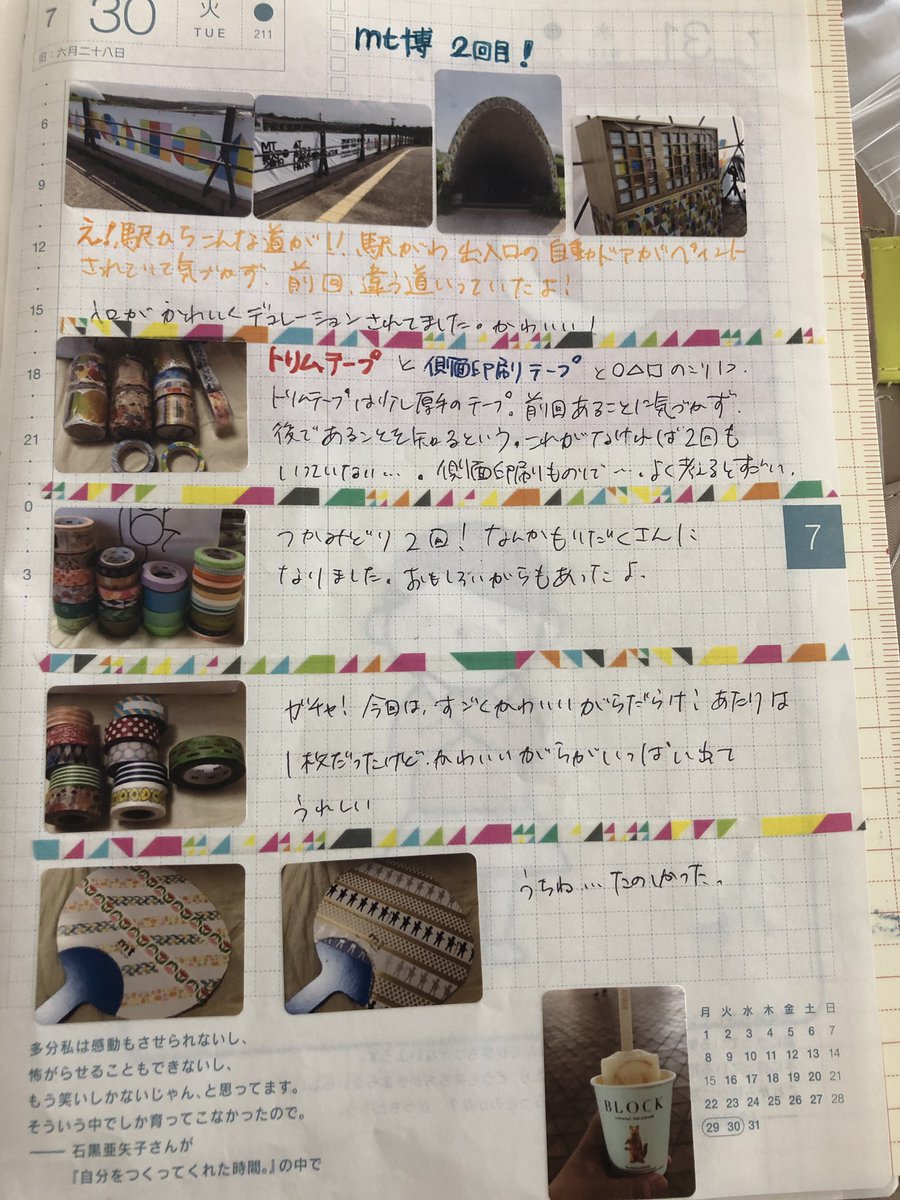 7 30 火
TUE
211
旧:六月二十八日
mt博 2回目!
6
9
12
15
18
21
0
3
え!駅からこんな道が!! 駅がわ 出入口の 自動ドアがペイント
されていて気づかず. 前回、違う道いっていたよ!
入口が かわいくデコレーションされてました。かわいい!
トリムテープ と 側面印刷テープ と○△□のこり1つ.
トリムテープは少し厚手のテープ。前回あることに気づかず.
後であることを知るという。これがなければ2回も
いっていない…。側面印刷ものびで…。よく考えるとすごい.
つかみどり 2回! なんかもりだくさんに
なりました。おもしろいがらもあったよ.
7
ガチャ! 今回は、すごくかわいいがらだらけ! あたりは
1枚だったけど.かわいいがらがいっぱい出て
うれしい
うちわ…たのしかった。
mt
mt
BLOCK
多分私は感動もさせられないし、
怖がらせることもできないし、
もう笑いしかないじゃん、と思ってます。
そういう中でしか育ってこなかったので。
―― 石黒亜矢子さんが
『自分をつくってくれた時間。』の中で
月 火 水 木 金 土 日
1 2 3 4 5 6 7
8 9 10 11 12 13 14
15 16 17 18 19 20 21
22 23 24 25 26 27 28
29 30 31